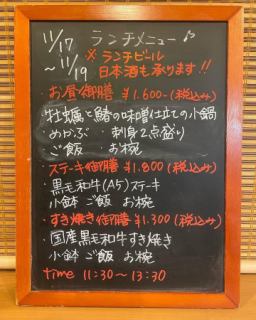 11/17 ランチメニュー♪
～11/19 ※ランチビール
日本酒も承ります!!
・お昼御膳 ¥1.600-(税込み)
・牡蠣と鱈の味噌仕立ての小鍋
めかぶ 刺身2点盛り
ご飯 お椀
・ステーキ御膳 ¥1.800(税込み)
・黒毛和牛(A5)ステーキ
小鉢 ご飯 お椀
・すき焼き御膳 ¥1.300(税込み)
・国産黒毛和牛すき焼き
小鉢 ご飯 お椀
time 11:30～13:30